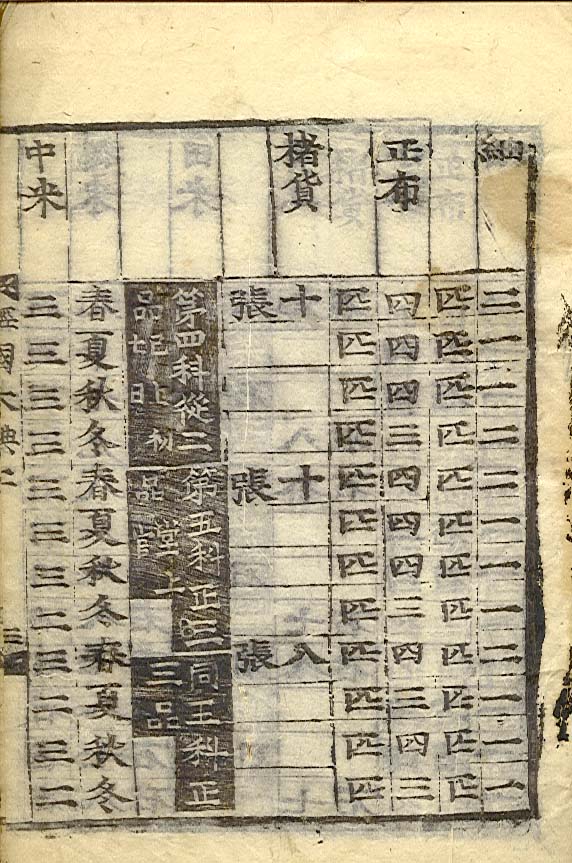 紬 三 一 一 二 二 一 一 一 二 一 一 一
匹 匹 匹 匹 匹 匹 匹 匹 匹 匹 匹 匹
正布 四 四 四 三 四 四 四 三 四 三 四 三
匹 匹 匹 匹 匹 匹 匹 匹 匹 匹 匹 匹
楮貨 十 十 八
張 張 張
第四科從二 第五科正三 同王科正
品 品堂上官 三品
春 夏 秋 冬 春 夏 秋 冬 春 夏 秋 冬
中米 三 三 三 三 三 三 三 二 三 二 三 二
經國大典二 三